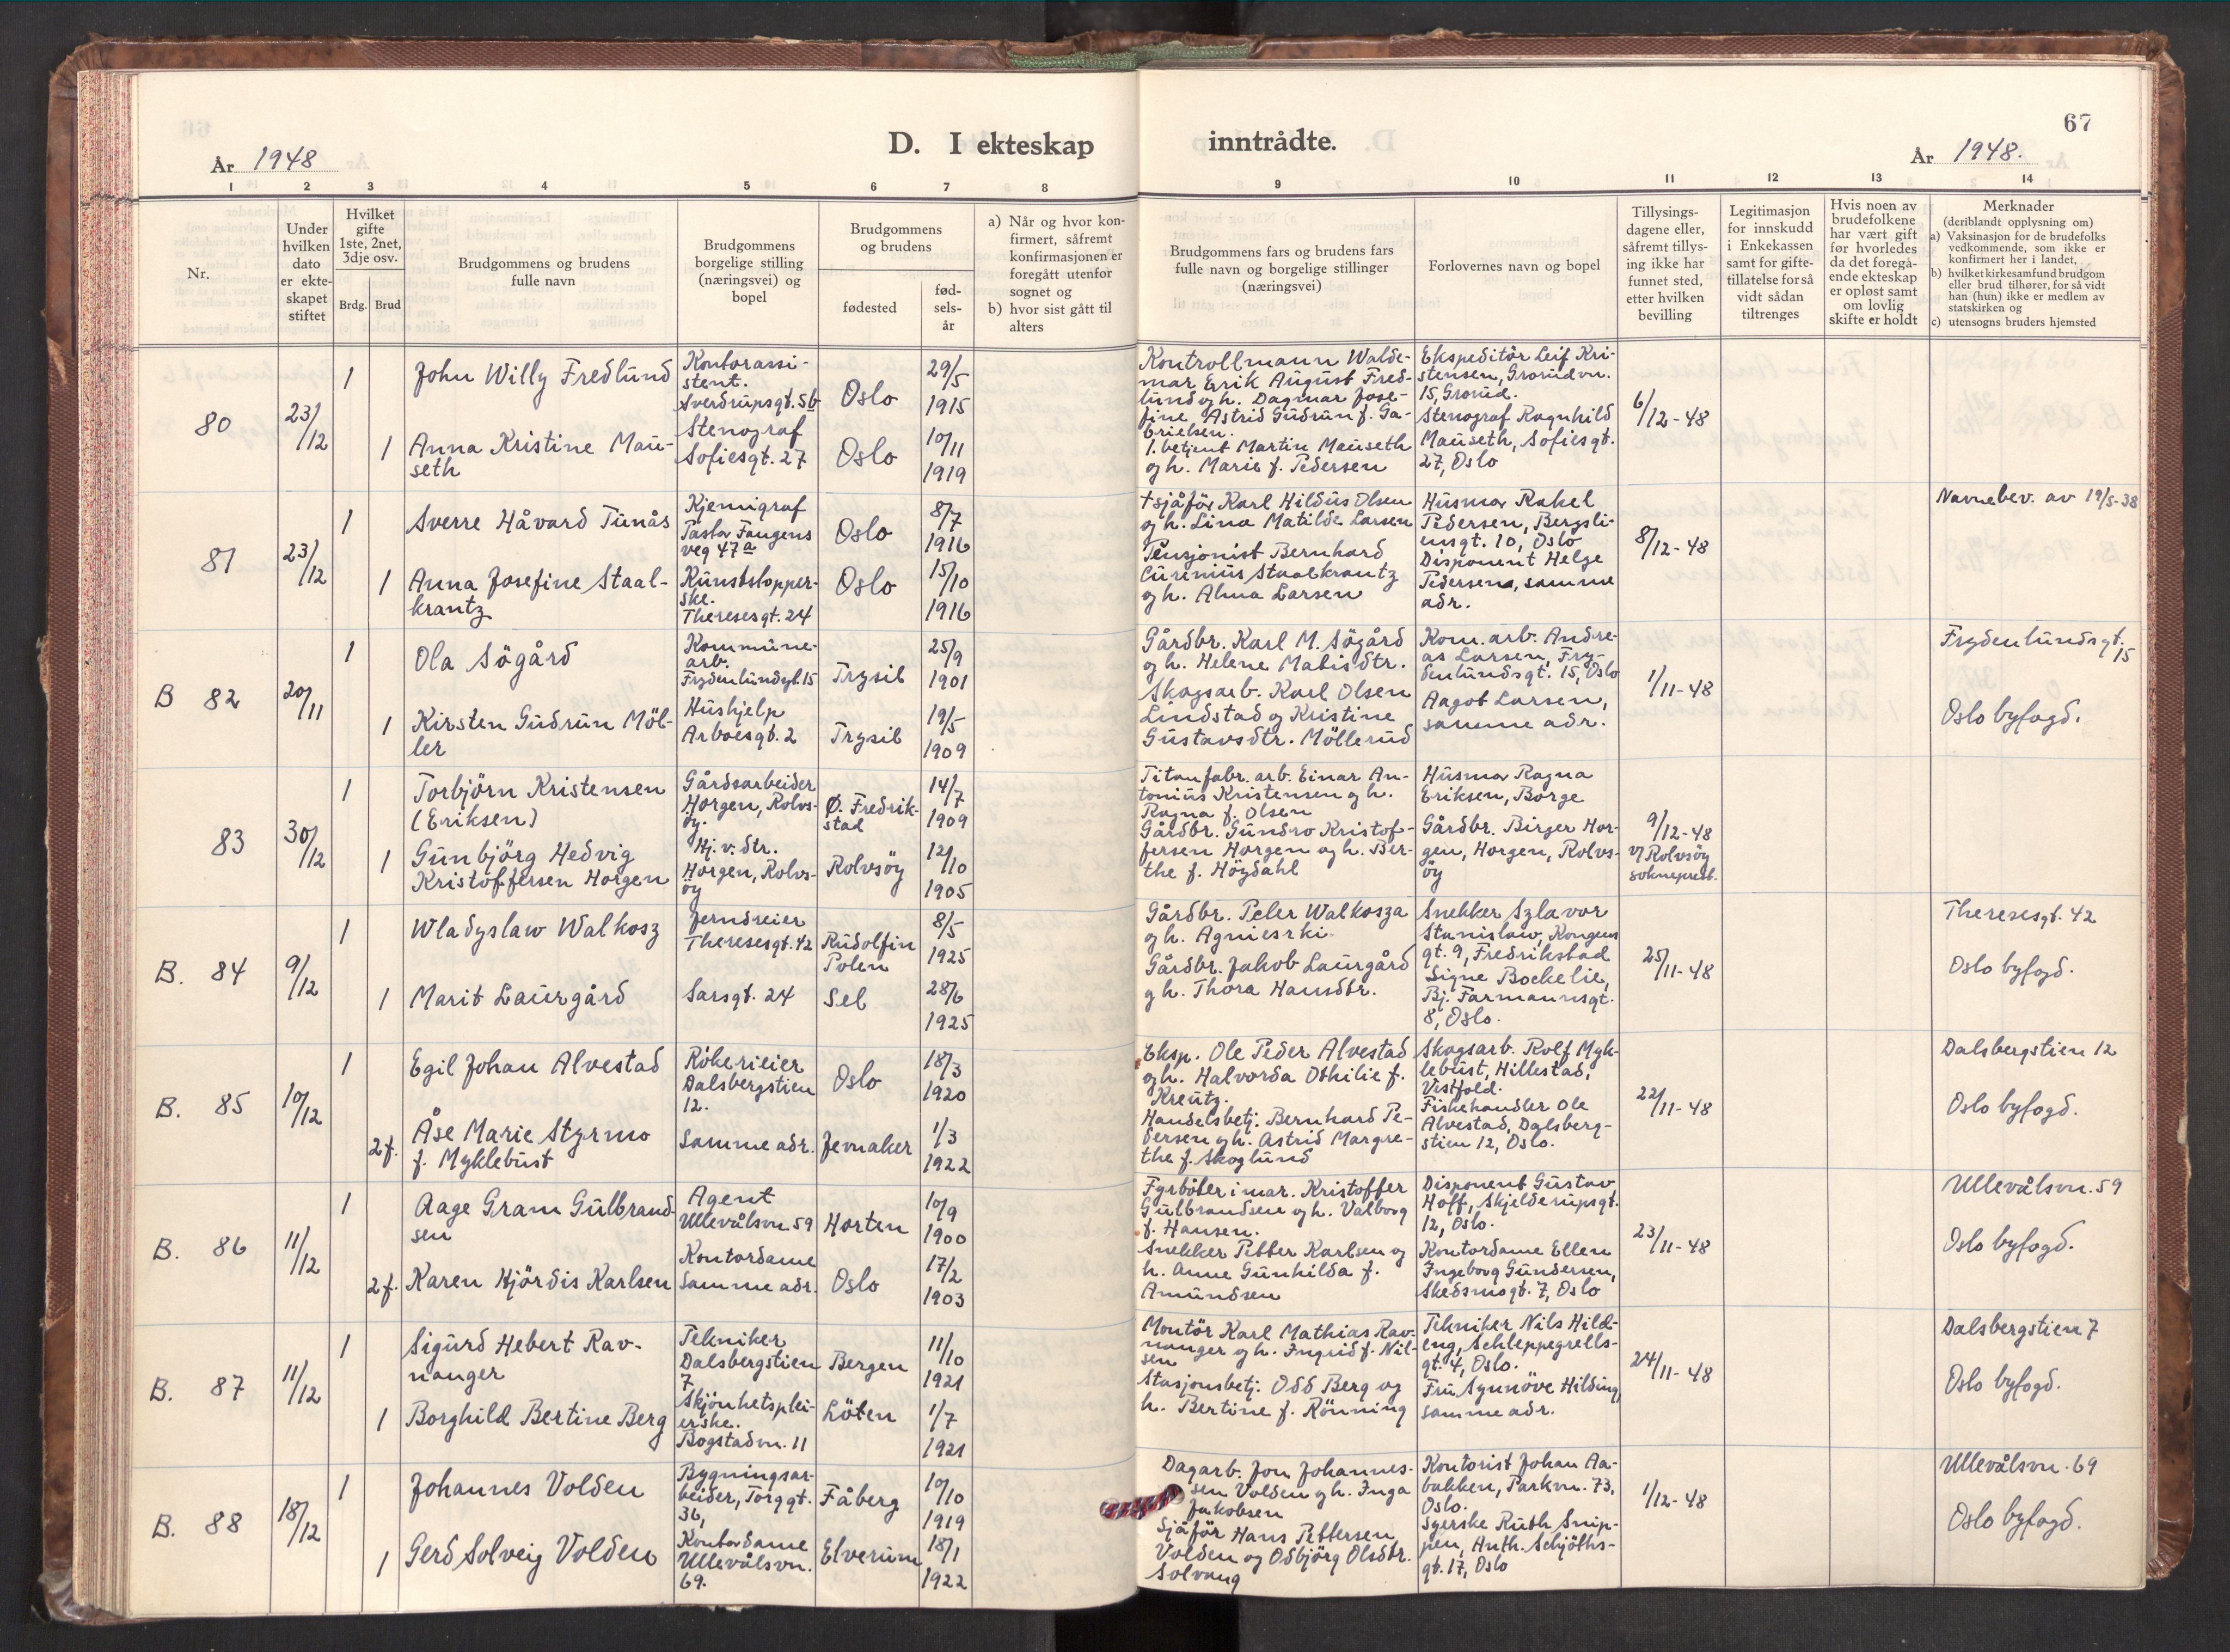 67
D. I ekteskap inntrådte.
År 1948
År 1948.
1 2 3 4 5 6 7 8 9 10 11 12 13 14
Nr.
Under
hvilken
dato
er ekte-
skapet
stiftet
Hvilket
gifte
1ste, 2net,
3dje osv.
Brdg. Brud
Brudgommens og brudens
fulle navn
Brudgommens
borgelige stilling
(næringsvei) og
bopel
Brudgommens
og brudens
fødested
fød-
sels-
år
a) Når og hvor kon-
firmert, såfremt
konfirmasjonen er
foregått utenfor
sognet og
b) hvor sist gått til
alters
Brudgommens fars og brudens fars
fulle navn og borgelige stillinger
(næringsvei)
Forlovernes navn og bopel
Tillysings-
dagene eller,
såfremt tillys-
ing ikke har
funnet sted,
etter hvilken
bevilling
Legitimasjon
for innskudd
i Enkekassen
samt for gifte-
tillatelse forså
vidt sådan
tiltrenges
Hvis noen av
brudefolkene
har vært gift
før hvorledes
da det foregå-
ende ekteskap
er opløst samt
om lovlig
skifte er holdt
Merknader
(deriblandt opplysning om)
a) Vaksinasjon for de brudefolks
vedkommende, som ikke er
konfirmert her i landet,
b) hvilket kirkesamfund brudgom
eller brud tilhører, for så vidt
han (hun) ikke er medlem av
statskirken og
c) utensogns bruders hjemsted
80
23/12
1
John Willy Fredlund
Kontorassi-
stent.
Sverdrupsgt. 5b
Oslo
29/5
1915
1
Anna Kristine Mau-
seth
Stenograf
Sofiesgt. 27
Oslo
10/11
1919
Kontrollmann Walde-
mar Erik August Fred-
lund og h. Dagmar Jose-
fine Astrid Gudrun f. Ga-
brielsen.
1. betjent Martin Mauseth
og h. Marie f. Pedersen
Ekspeditør Leif Kri-
stensen, Grorudvn.
15, Grorud.
Stenograf Ragnhild
Mauseth, Sofiesgt.
27, Oslo
6/12-48
81
23/12
1
Sverre Håvard Tunås
Kjemigraf
Pastor Fangens
veg 47a
Oslo
8/7
1916
1
Anna Josefine Staal-
krantz
Kunststopper-
ske.
Theresesgt. 24
Oslo
15/10
1916
+ sjåfør Karl Hildus Olsen
og h. Lina Matilde Larsen
Pensjonist Bernhard
Curenius Staalkrantz
og h. Alma Larsen
Husmor Rakel
Pedersen, Bergsli-
ensgt. 10, Oslo
Disponent Helge
Pedersen, samme
adr.
8/12-48
Navnebev. av 19/5-38
B 82
20/11
1
Ola Sögård
Kommune-
arb.
Frydenlundsgt. 15
Trysil
25/9
1901
1
Kirsten Gudrun Möl-
ler
Hushjelp
Arboesgt. 2
Trysil
19/5
1909
Gårdbr. Karl M. Sögård
og h. Helene Matisdtr.
Skogsarb. Karl Olsen
Lindstad og Kristine
Gustavsdtr. Möllerud
Kom. arb. Andre-
as Larsen, Fry-
denlundsgt. 15, Oslo
Aagot Larsen,
samme adr.
1/11-48
Frydenlundsgt.
15
Oslo byfogd.
83
30/12
1
Torbjörn Kristensen
(Eriksen)
Gårdsarbeider
Horgen, Rolvs-
öy.
Ø. Fredrik-
stad
14/7
1909
1
Gunbjörg Hedvig
Kristoffersen Horgen
Hj. v. dtr.
Horgen, Rolvs-
öy
Rolvsöy
12/10
1905
Titanfabr. arb. Einar An-
tonius Kristensen og h.
Ragna f. Olsen
Gårdbr. Gundro Kristof-
fersen Horgen og h. Ber-
the f. Höydahl
Husmor Ragna
Eriksen, Borge
Gårdbr. Birger Hor-
gen, Horgen, Rolvs-
öy
9/12-48
v/ Rolvsöy
sokneprest.
B. 84
9/12
1
Wladyslaw Walkosz
Jerndreier
Theresesgt. 42
Rudolfin
Polen
8/5
1925
1
Marit Laurgård
Sarsgt. 24
Sel
28/6
1925
Gårdbr. Peter Walkosza
og h. Agnieszki
Gårdbr. Jakob Laurgård
og h. Thora Hansdtr.
Snekker Szlavor
Stanislaw, Kongens
gt. 9, Fredrikstad
Signe Bockelie,
Bj. Farmannsgt.
8, Oslo.
25/11-48
Theresesgt. 42
Oslo byfogd.
B. 85
10/12
1
Egil Johan Alvestad
Rökerieier
Dalsbergstien
12.
Oslo
18/3
1920
2 f.
Åse Marie Styrmo
f. Myklebust
Samme adr.
Jevnaker
1/3
1922
Eksp. Ole Peder Alvestad
og h. Halvorda Othilie f.
Kreutz.
Handelsbetj. Bernhard Pe-
dersen og h. Astrid Margre-
the f. Skoglund
Skogsarb. Rolf Myk-
lebust, Hillestad,
Vestfold.
Fiskehandler Ole
Alvestad, Dalsberg-
stien 12, Oslo.
22/11-48
Dalsbergstien 12
Oslo byfogd.
B. 86
11/12
1
Aage Gram Gulbrand-
sen
Agent
Ullevålsvn. 59
Horten
10/9
1900
2 f.
Karen Hjördis Karlsen
Kontordame
Samme adr.
Oslo
17/2
1903
Fyrböter i mar. Kristoffer
Gulbrandsen og h. Valborg
f. Hansen.
Snekker Petter Karlsen og
h. Anne Gunhilda f.
Amundsen
Disponent Gustav
Hoff, Skjelderupsgt.
12, Oslo.
Kontordame Ellen
Ingeborg Gundersen,
Skedsmogt. 7, Oslo
23/11-48
Ullevålsvn. 59
Oslo byfogd.
B. 87
11/12
1
Sigurd Hebert Rav-
nanger
Tekniker
Dalsbergstien
7
Bergen
11/10
1921
1
Borghild Bertine Berg
Skjönhetsplei-
erske.
Bogstadvn. 11
Löten
1/7
1921
Montör Karl Mathias Rav-
nanger og h. Ingrid f. Nil-
sen
Stasjonsbetj. Odd Berg og
h. Bertine f. Rönning
Tekniker Nils Hild-
eng, Schleppegrells-
gt. 4, Oslo.
Fru Synnöve Hilding,
samme adr.
24/11-48
Dalsbergstien 7
Oslo byfogd.
B. 88
18/12
1
Johannes Volden
Bygningsar-
beider, Torggt.
36,
Fåberg
10/10
1919
1
Gerd Solveig Volden
Kontordame
Ullevålsvn.
69.
Elverum
18/1
1922
Dagarb. Jon Johannes-
sen Volden og h. Inga
Jakobsen
Sjåför Hans Pettersen
Volden og Odbjörg Olsdtr.
Solvang
Kontorist Johan Aa-
bakken, Parkvn. 73,
Oslo.
Syerske Ruth Snip-
pen, Anth. Schjöths-
gt. 17, Oslo
1/12-48
Ullevålsvn. 69
Oslo byfogd.